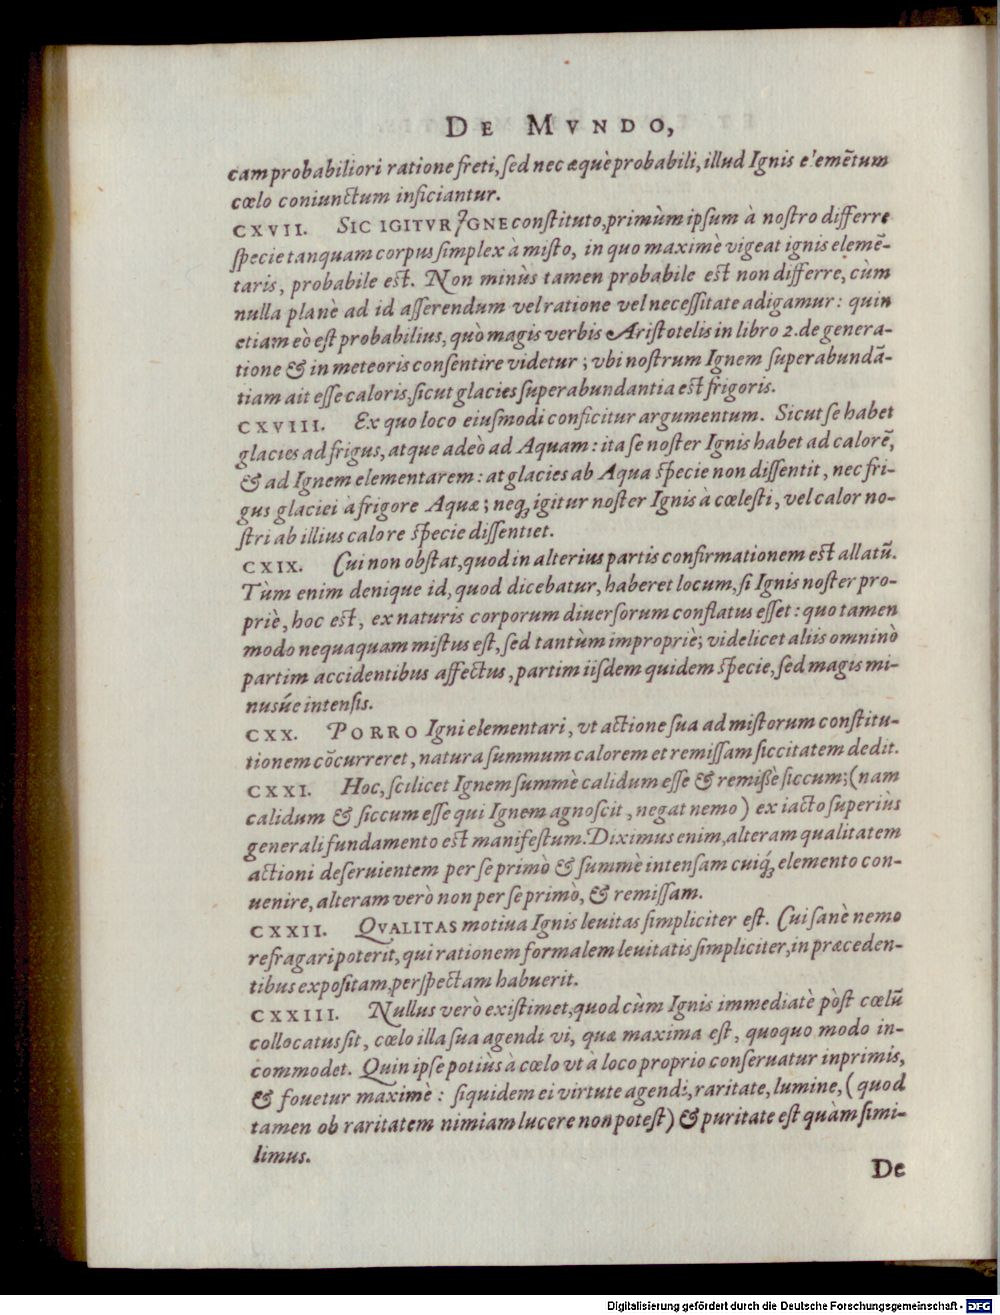 DE MVNDO,
cam probabiliori ratione freti, sed nec æquè probabili, illud Ignis elemẽtum
cœlo coniunctum inficiantur.
CXVII. SIC IGITVR IGNE constituto, primùm ipsum à nostro differre
specie tanquam corpus simplex à misto, in quo maximè vigeat ignis elemẽ-
taris, probabile est. Non minùs tamen probabile est non differre, cùm
nulla planè ad id asserendum vel ratione vel necessitate adigamur: quin
etiam eò est probabilius, quò magis verbis Aristotelis in libro 2. de genera-
tione & in meteoris consentire videtur; vbi nostrum Ignem superabundã-
tiam ait esse caloris, sicut glacies superabundantia est frigoris.
CXVIII. Ex quo loco eiusmodi conficitur argumentum. Sicut se habet
glacies ad frigus, atque adeò ad Aquam: ita se noster Ignis habet ad calorẽ,
& ad Ignem elementarem: at glacies ab Aqua specie non dissentit, nec fri-
gus glaciei à frigore Aquæ; neq; igitur noster Ignis à cœlesti, vel calor no-
stri ab illius calore specie dissentiet.
CXIX. Cui non obstat, quod in alterius partis confirmationem est allatũ.
Tùm enim denique id, quod dicebatur, haberet locum, si Ignis noster pro-
priè, hoc est, ex naturis corporum diuersorum conflatus esset: quo tamen
modo nequaquam mistus est, sed tantùm impropriè; videlicet aliis omninò
partim accidentibus affectus, partim iisdem quidem specie, sed magis mi-
nusúe intensis.
CXX. PORRO Igni elementari, vt actione sua ad mistorum constitu-
tionem cõcurreret, natura summum calorem et remissam siccitatem dedit.
CXXI. Hoc, scilicet Ignem summè calidum esse & remißè siccum; (nam
calidum & siccum esse qui Ignem agnoscit, negat nemo) ex iacto superiùs
generali fundamento est manifestum. Diximus enim, alteram qualitatem
actioni deseruientem per se primò & summè intensam cuiq́; elemento con-
uenire, alteram verò non per se primò, & remissam.
CXXII. QVALITAS motiua Ignis leuitas simpliciter est. Cui sanè nemo
refragari poterit, qui rationem formalem leuitatis simpliciter, in præceden-
tibus expositam, perspectam habuerit.
CXXIII. Nullus verò existimet, quod cùm Ignis immediatè pòst cœlũ
collocatus sit, cœlo illa sua agendi vi, quæ maxima est, quoquo modo in-
commodet. Quin ipse potiùs à cœlo vt à loco proprio conseruatur inprimis,
& fouetur maximè: siquidem ei virtute agendi, raritate, lumine, (quod
tamen ob raritatem nimiam lucere non potest) & puritate est quàm simi-
limus.
De
Digitalisierung gefördert durch die Deutsche Forschungsgemeinschaft - DFG